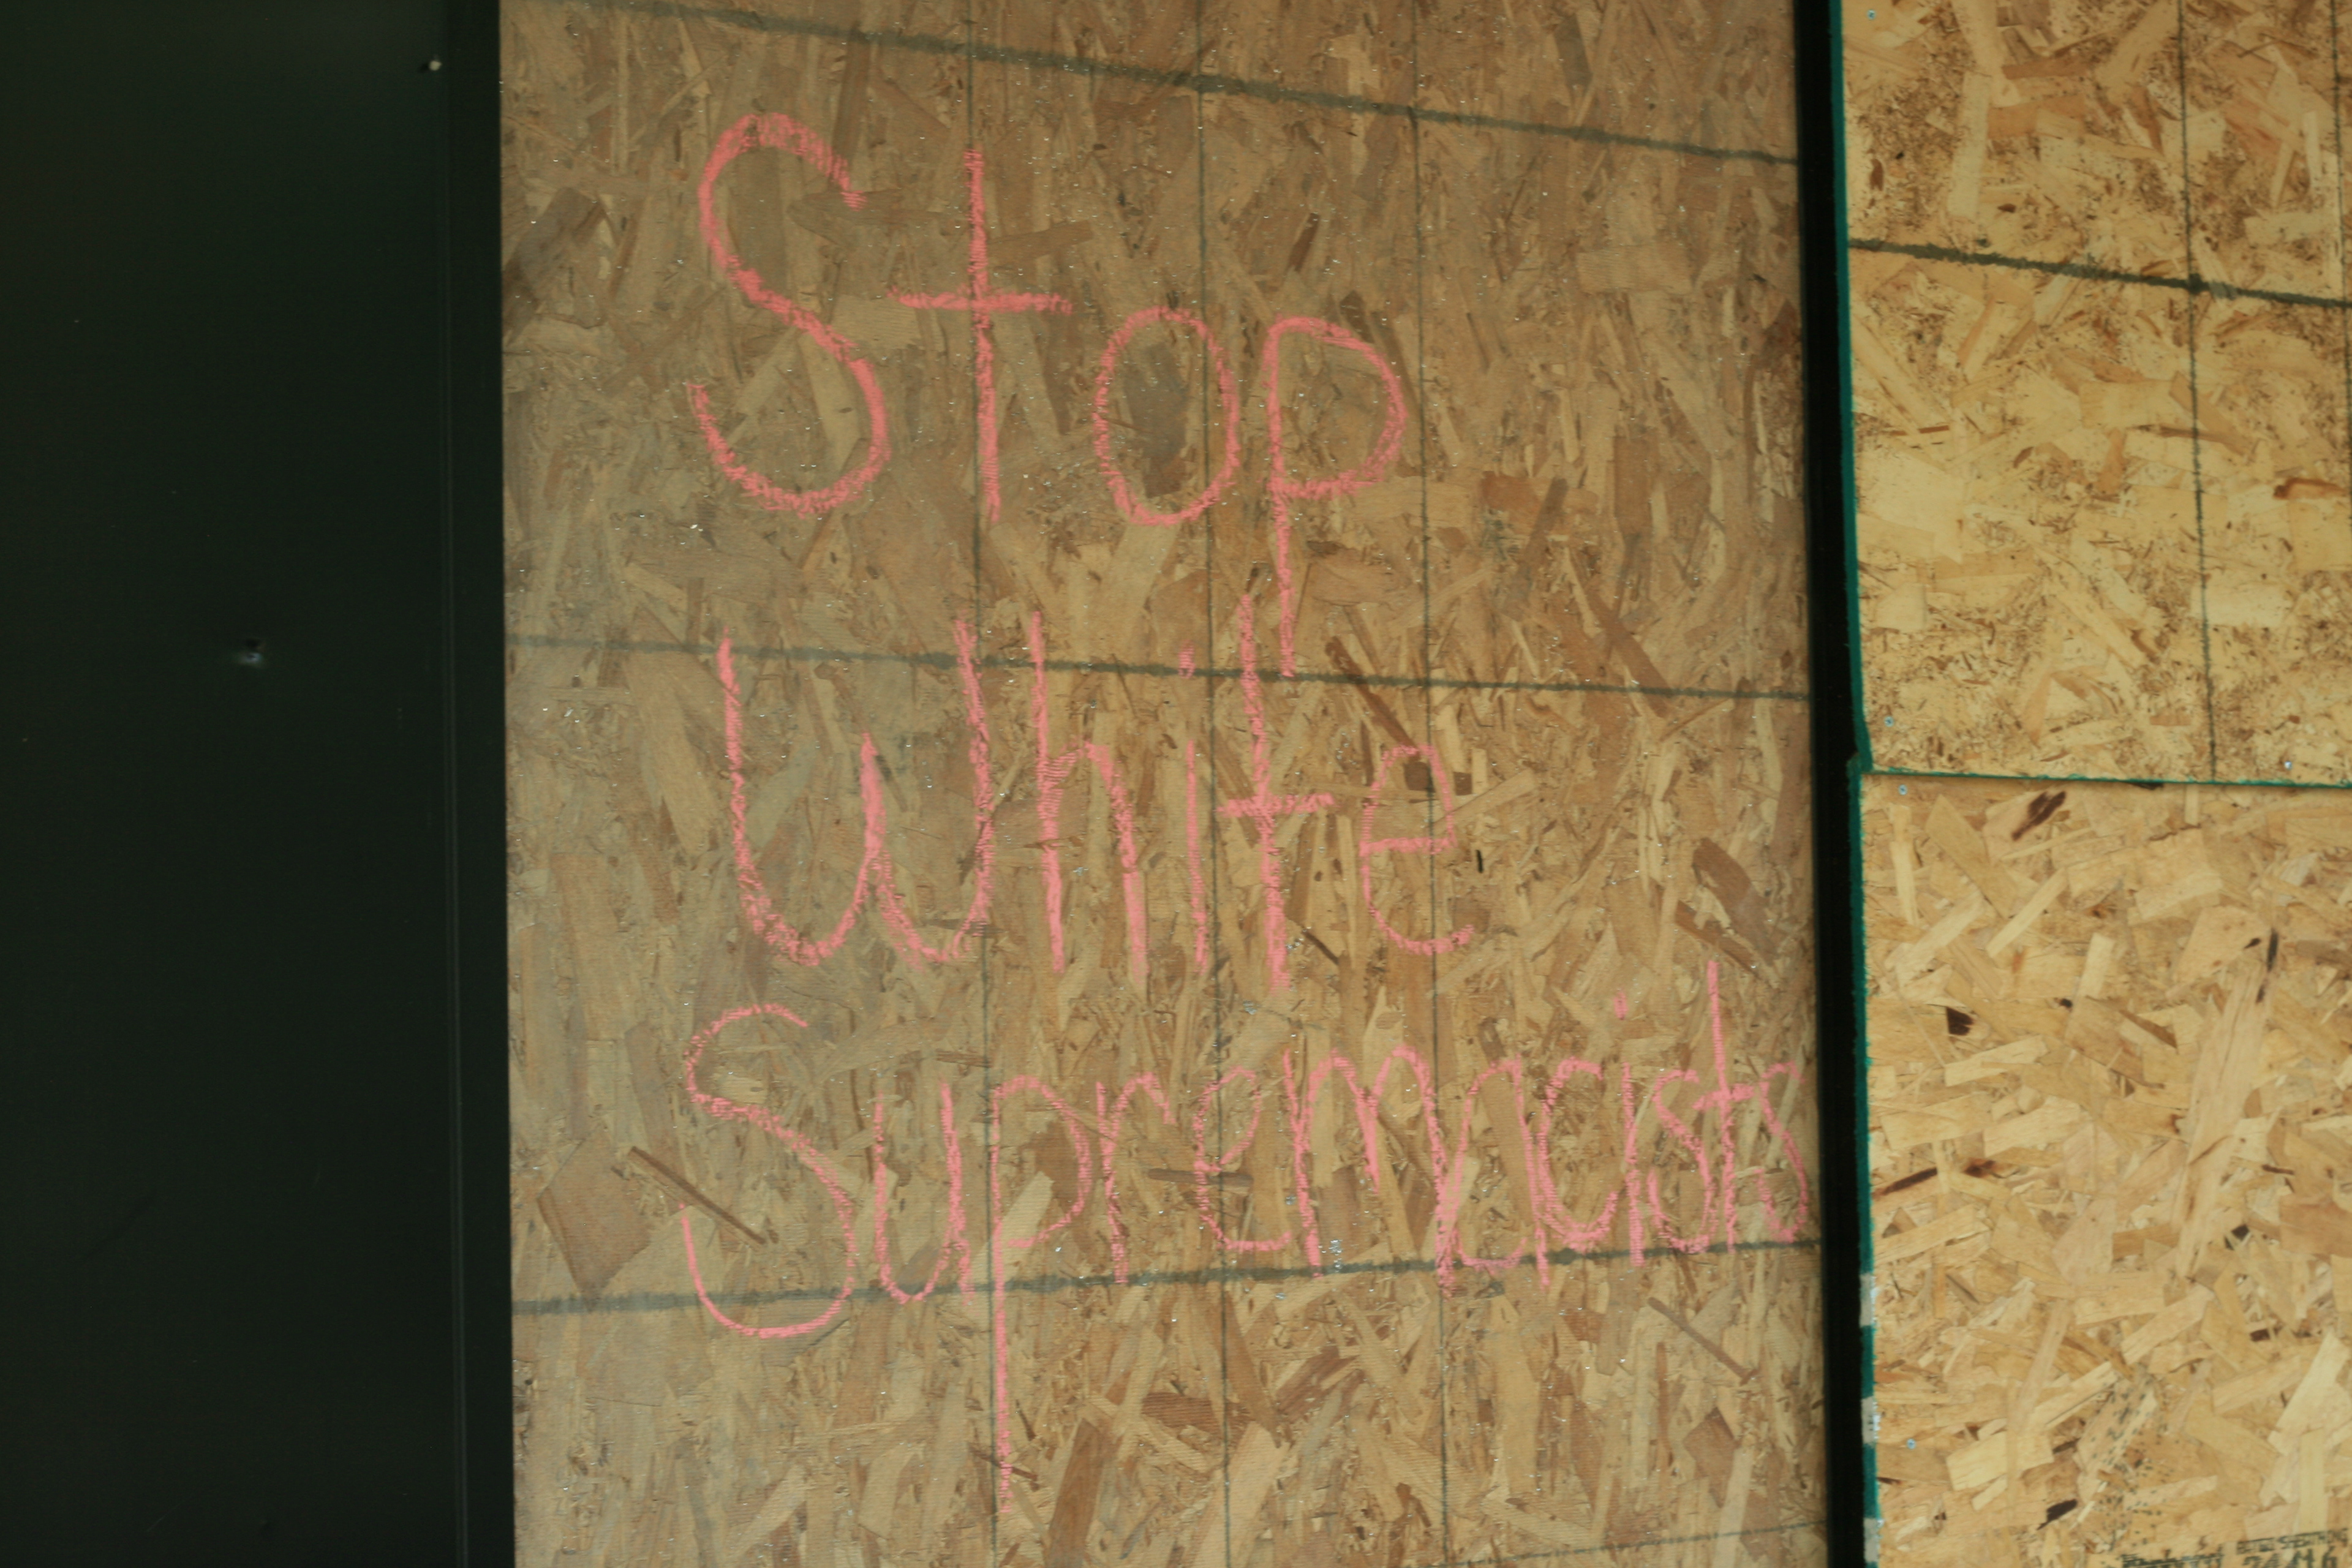 Stop
White
Supremacists